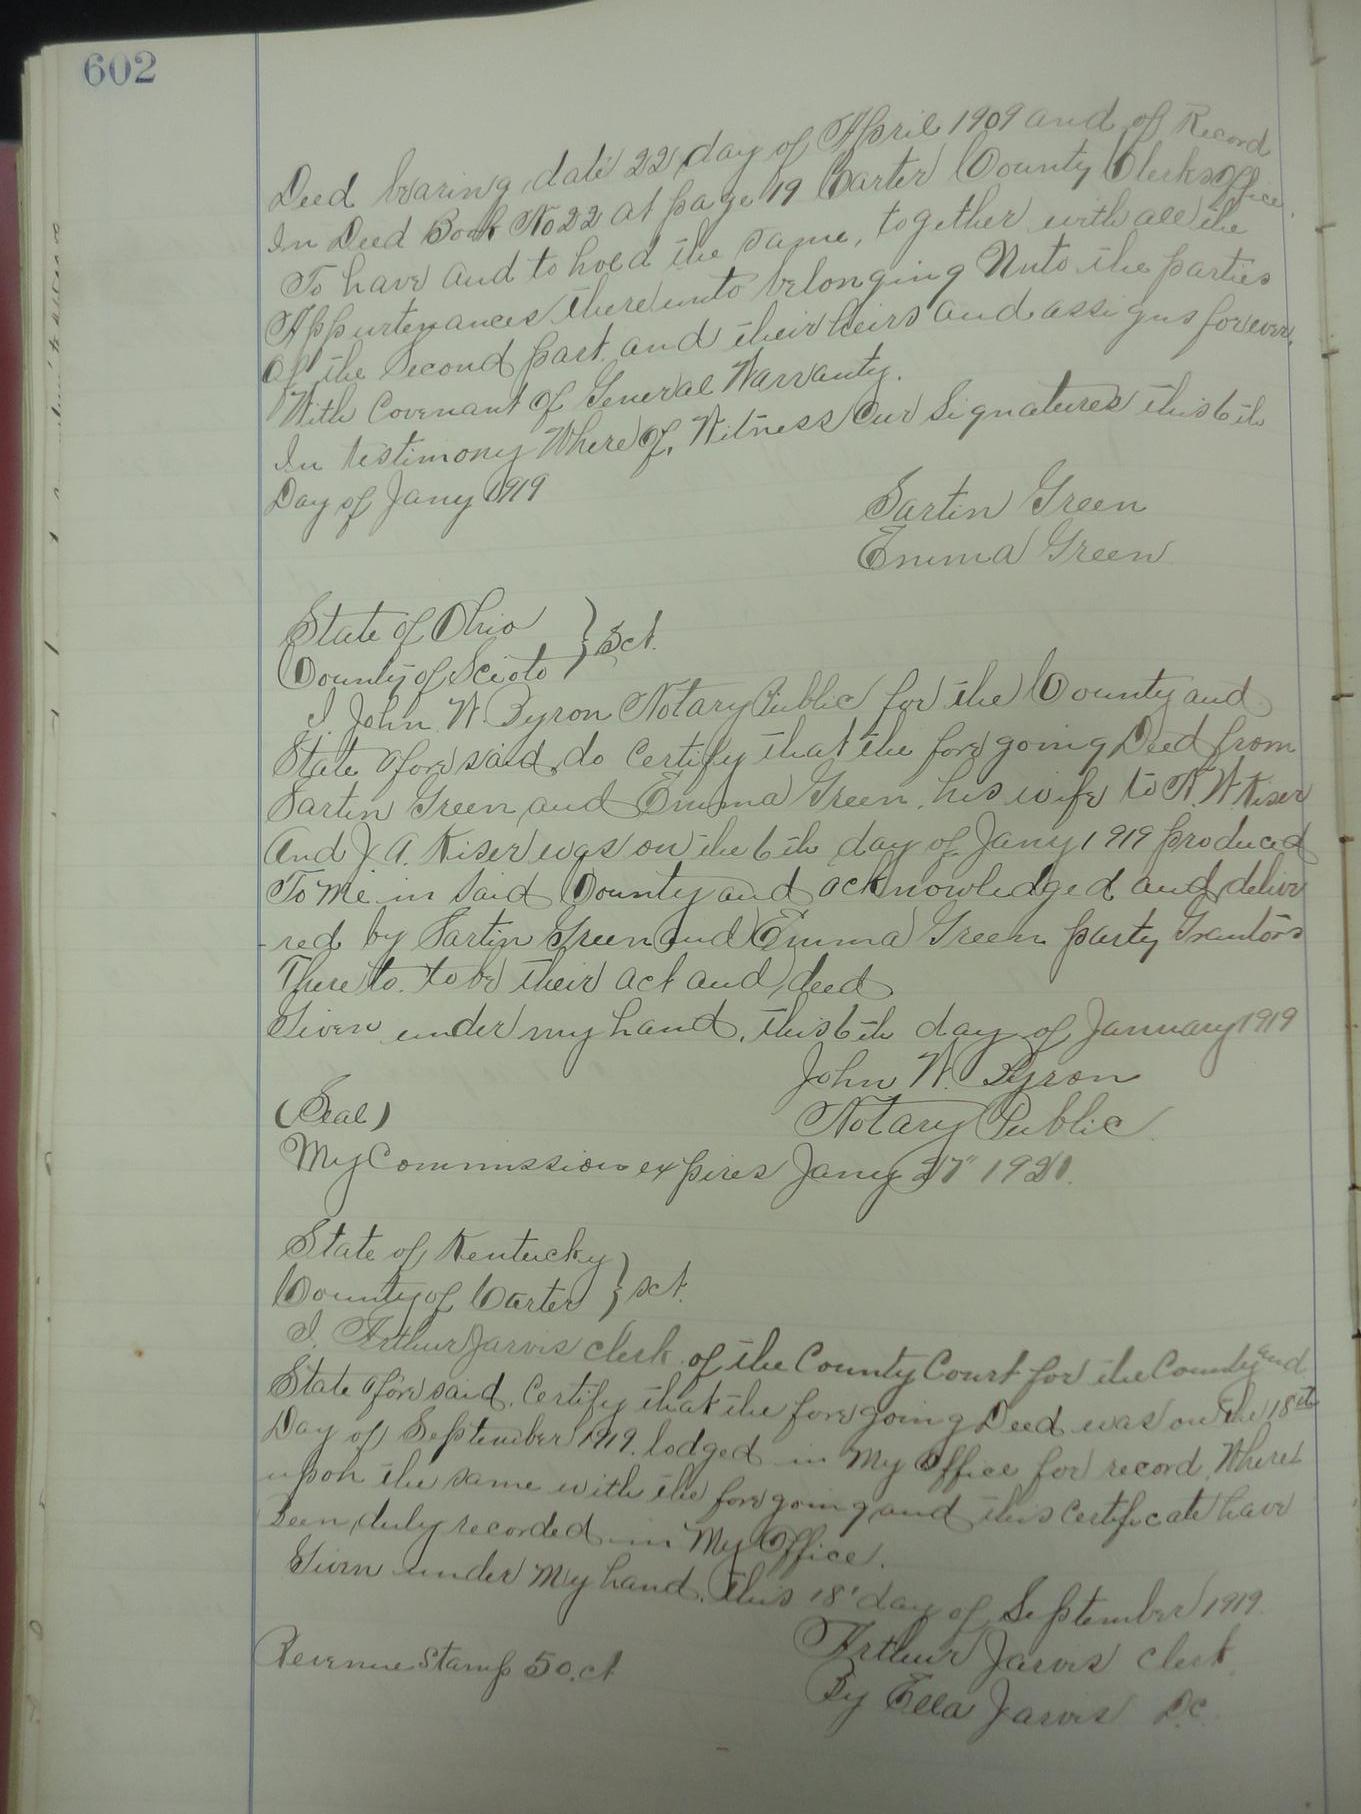 602
Deed bearing date 22 day of April 1909 and of Record
In Deed Book No 22 at page 19 Carter County Clerks Office.
To have and to hold the same, together with all the
Appurtenances thereunto belonging Unto the parties
of the Second part and their heirs and assigns forever.
With Covenant of General Warranty.
In testimony Where of, Witness Our Signatures this 6th
Day of Jany 1919
Sartin Green
Emma Green
State of Ohio
County of Scioto } Sct.
I. John W. Byron Notary Public for the County and
State afore said, do Certify that the fore going Deed from
Sartin Green and Emma Green, his wife to N. W Kiser
And J. A. Kiser was on the 6th day of Jany 1919 produced
To Me in Said County and acknowledged and delive
-red by Sartin Green and Emma Green party Grantors
There to. to be their act and deed
Given under my hand, this 6th day of January 1919
John W. Byron
(Seal) Notary Public
My Commission expires Jany 27" 1921.
State of Kentucky
County of Carter } sct.
I. Arthur Jarvis clerk of the County Court for the County and
State afore said. Certify that the fore going Deed was on the 18th
Day of September 1919. lodged in My Office for record, Where
upon the same with the fore going and this Certificate have
Been duly recorded in My Office.
Given under My hand. This 18' day of September 1919.
Arthur Jarvis Clerk.
Revenue Stamp 50.ct By Ella Jarvis D.C.